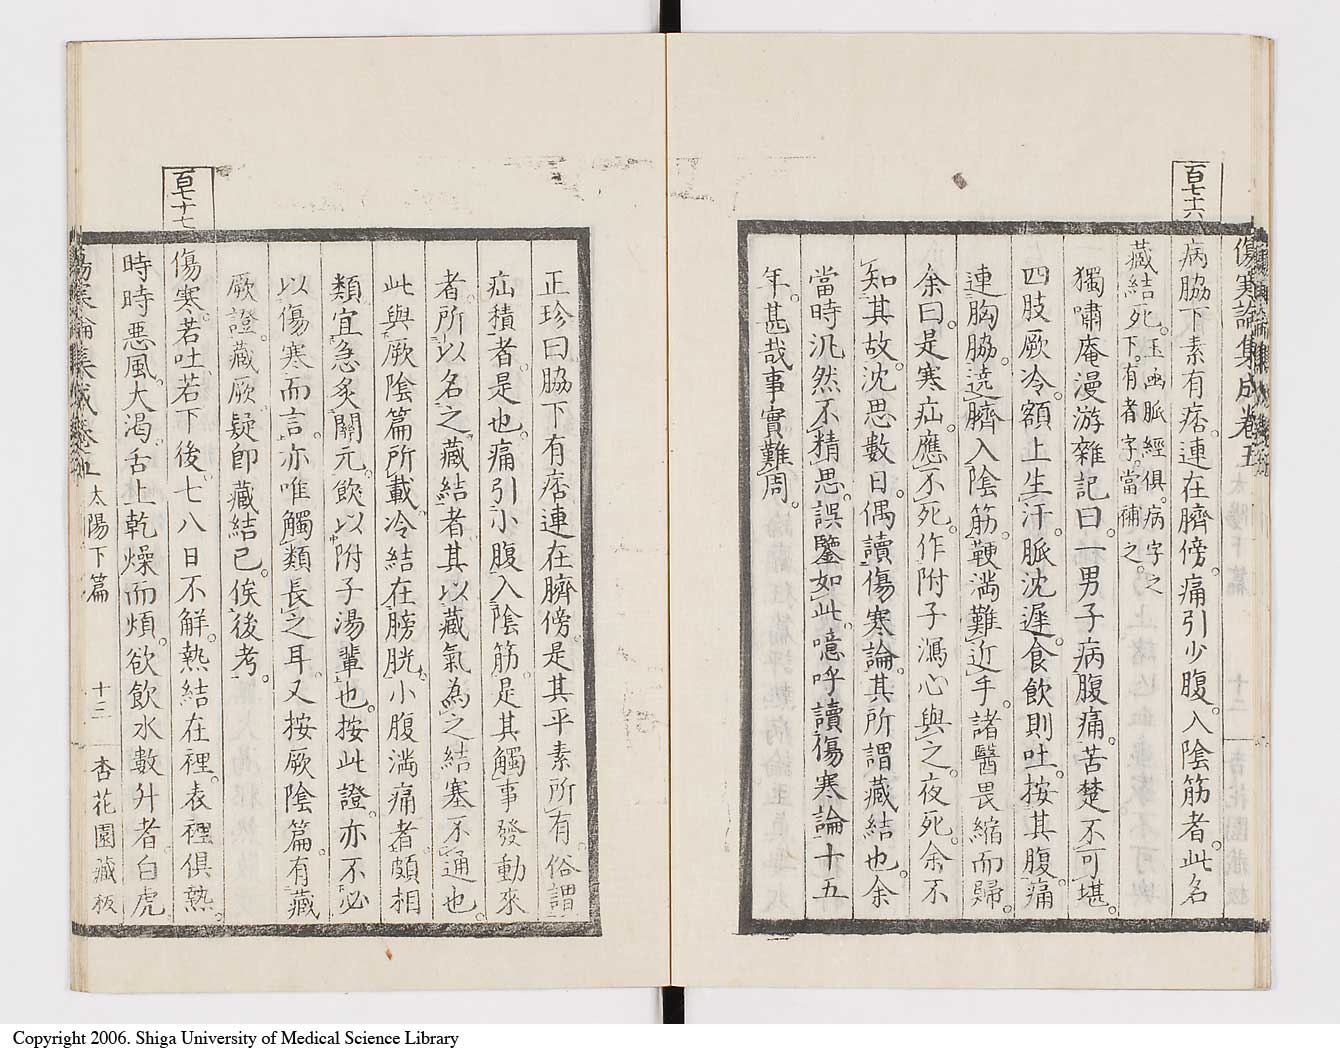 百七十六
傷寒論集成卷五
病脇下素有痞。連在臍傍。痛引少腹。入陰筋者。此名
藏結死。玉函脈經俱。病字之
下。有者字。當補之。
獨嘯庵漫游雜記曰。一男子病腹痛。苦楚不可堪。
四肢厥冷。額上生汗。脈沈遲。食飲則吐。按其腹。痛
連胸脇。遶臍入陰筋。鞕滿難近手。諸醫畏縮而歸。
余曰。是寒疝。應不死。作附子瀉心與之。夜死。余不
知其故。沈思數日。偶讀傷寒論。其所謂藏結也。余
當時汎然不精思。誤鑒如此。噫呼讀傷寒論十五
年。甚哉事實難周。
正珍曰脇下有痞連在臍傍。是其平素所有。俗謂
疝積者。是也。痛引小腹入陰筋。是其觸事發動來
者。所以名之藏結者。其以藏氣為之結塞不通也。
此與厥陰篇所載冷結在膀胱。小腹滿痛者。頗相
類。宜急炙關元。飲以附子湯輩也。按此證。亦不必
以傷寒而言。亦唯觸類長之耳。又按厥陰篇。有藏
厥證。藏厥疑即藏結已。俟後考。
百七十七
傷寒。若吐若下後。七八日不解。熱結在裡。表裡俱熱。
時時惡風。大渴。舌上乾燥而煩。欲飲水數升者。白虎
傷寒論集成卷五 太陽下篇 十三 杏花園藏板
Copyright 2006. Shiga University of Medical Science Library